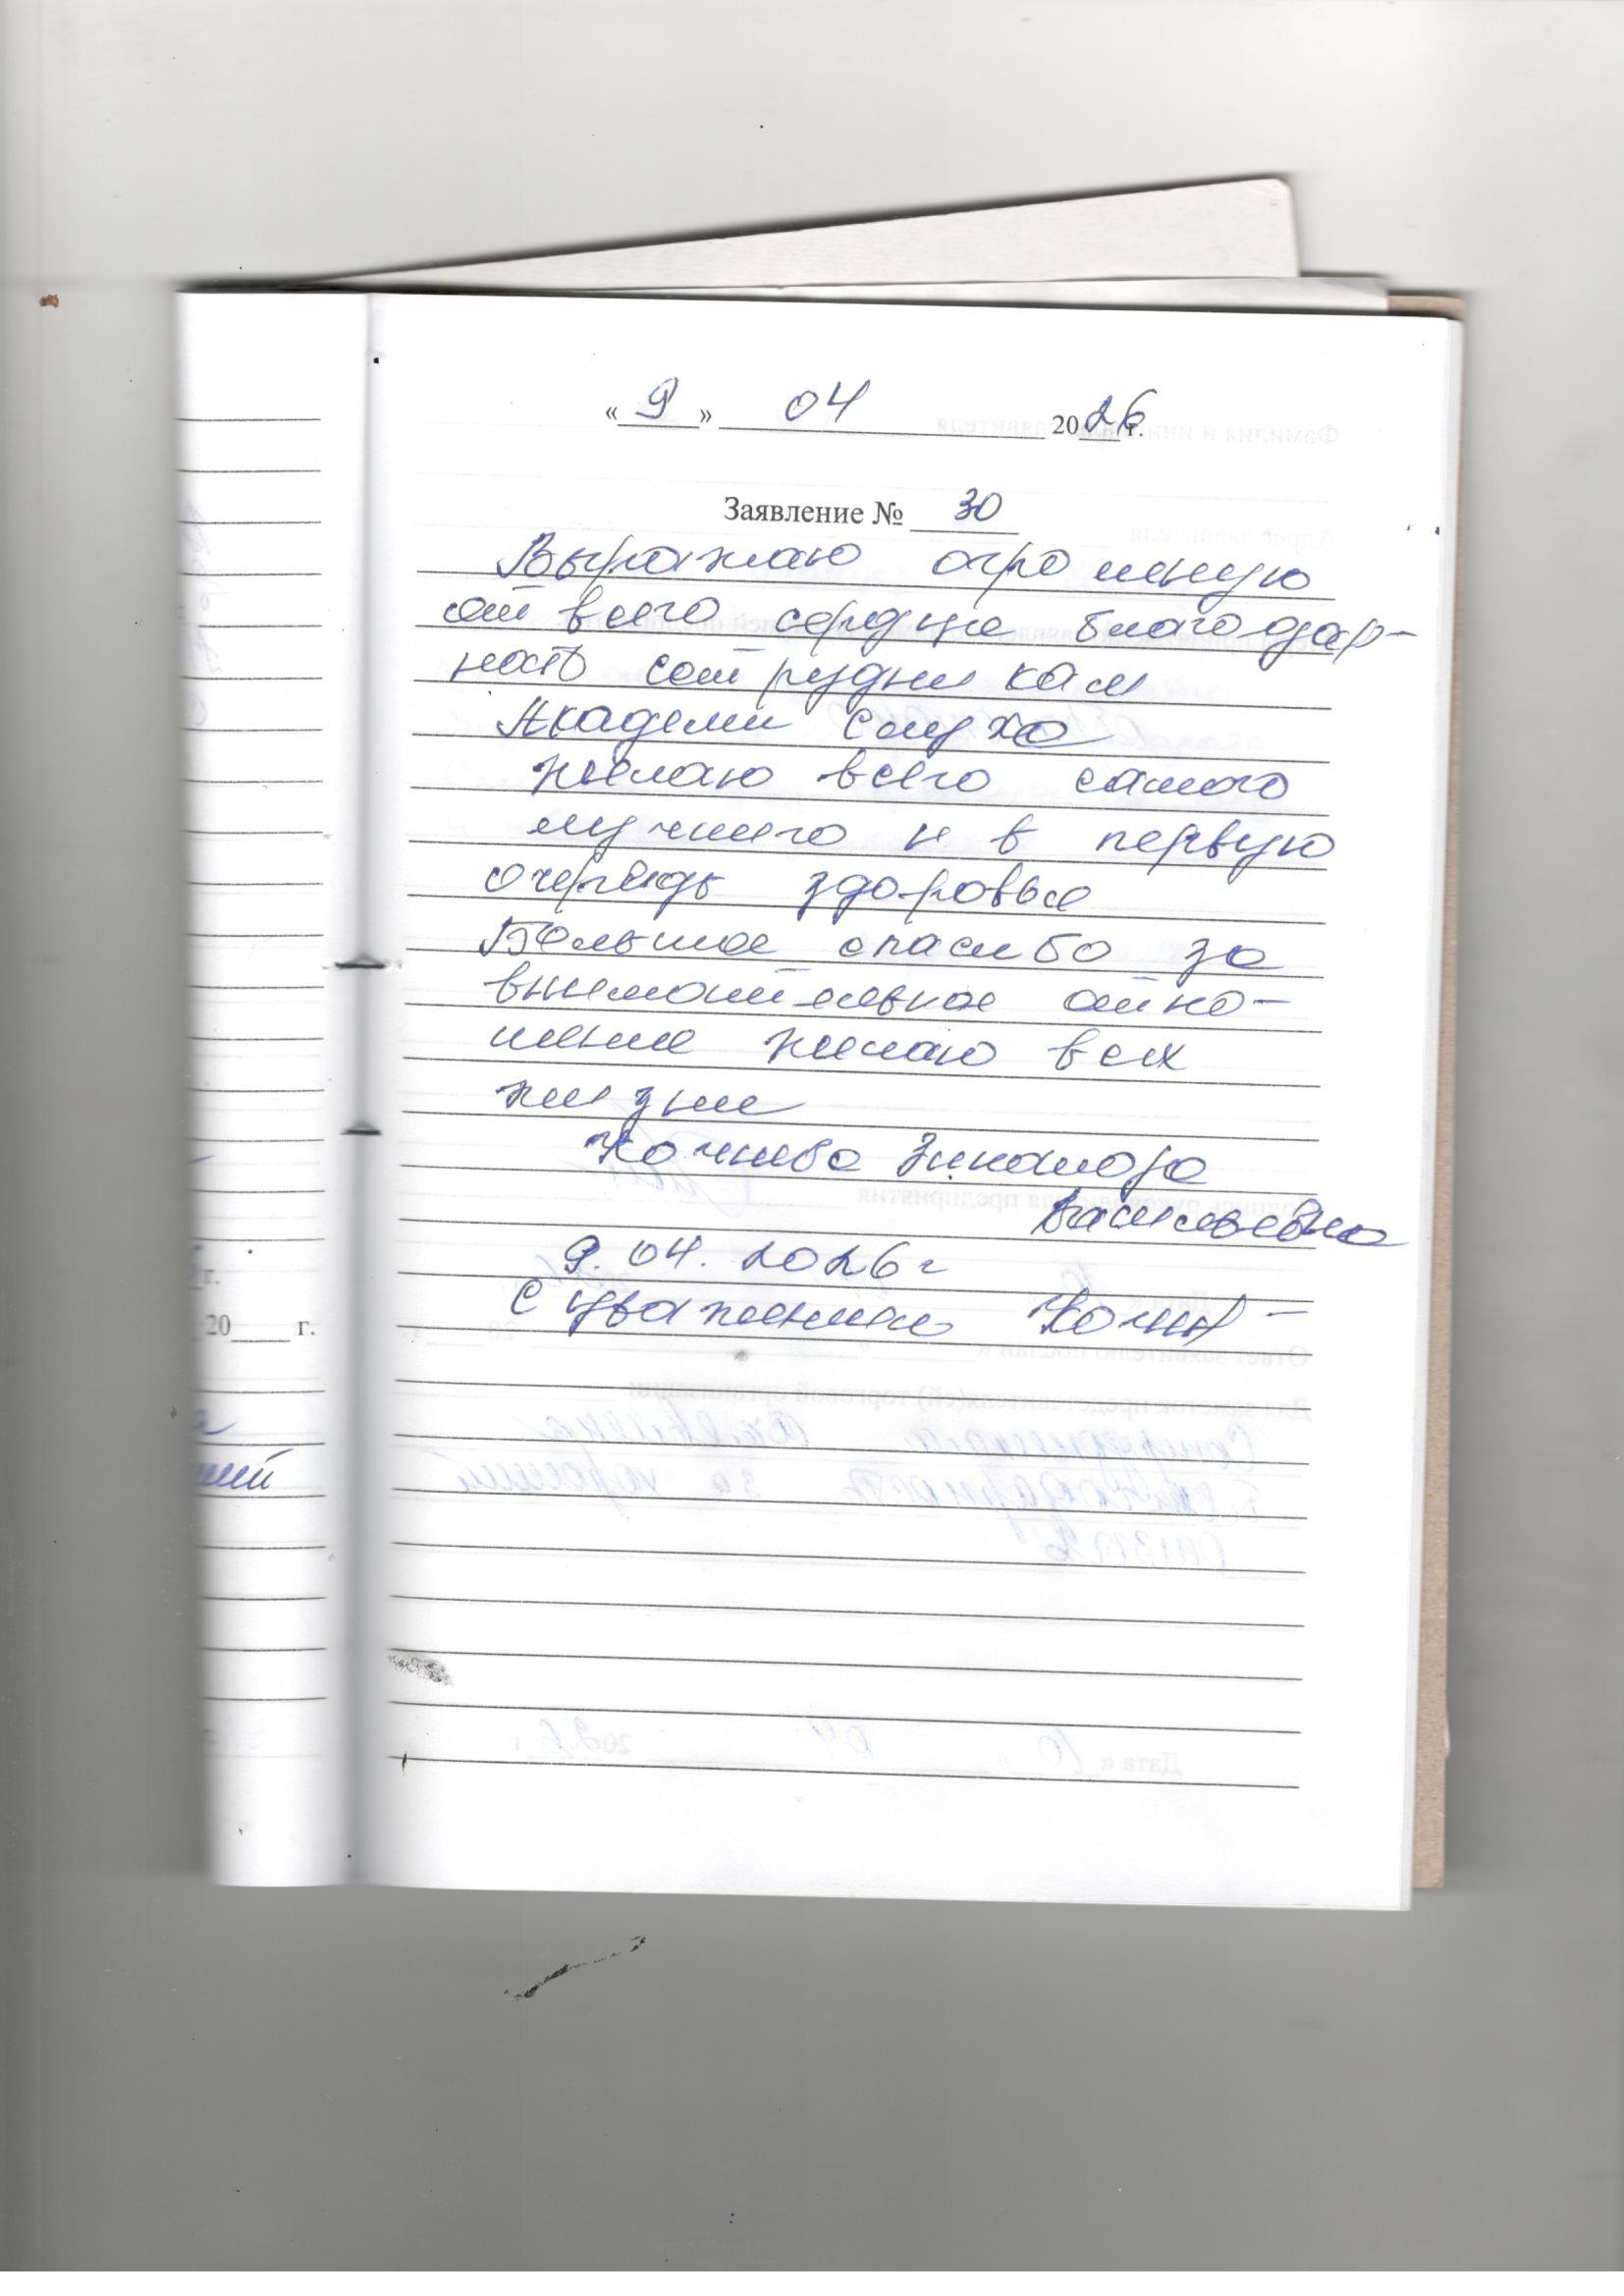 « 9 » 04 2026 г.
Заявление № 30
Выражаю огромную
от всего сердца благодар-
ность сотрудникам
Академи Слуха
желаю всего самого
лучшего и в первую
очередь здоровье
Большое спасибо за
внимательное отно-
шение желаю всех
жизни
Зинаида
Васильевна
9.04.2026 г
С уважением
г.
20 г.
ший